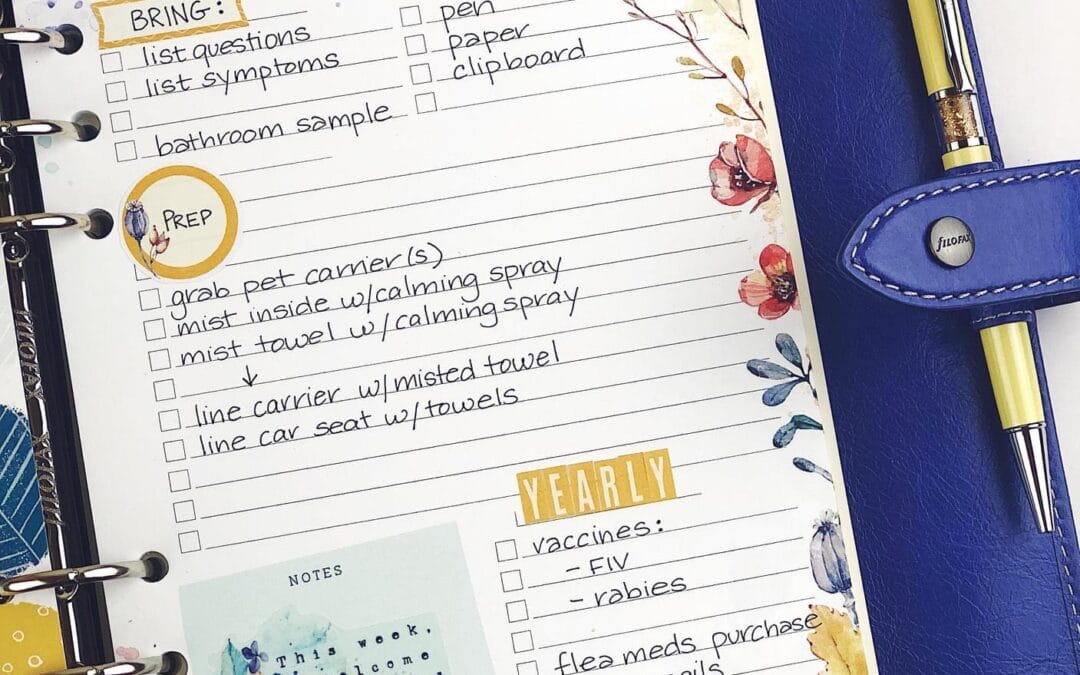 BRING:
list questions
list symptoms
bathroom sample
pen
paper
clipboard
PREP
grab pet carrier(s)
mist inside w/calming spray
mist towel w/calming spray
↓
line carrier w/misted towel
line car seat w/towels
YEARLY
vaccines:
- FIV
- rabies
flea meds purchase
NOTES
This week,
FILOFAX
FILOFAX